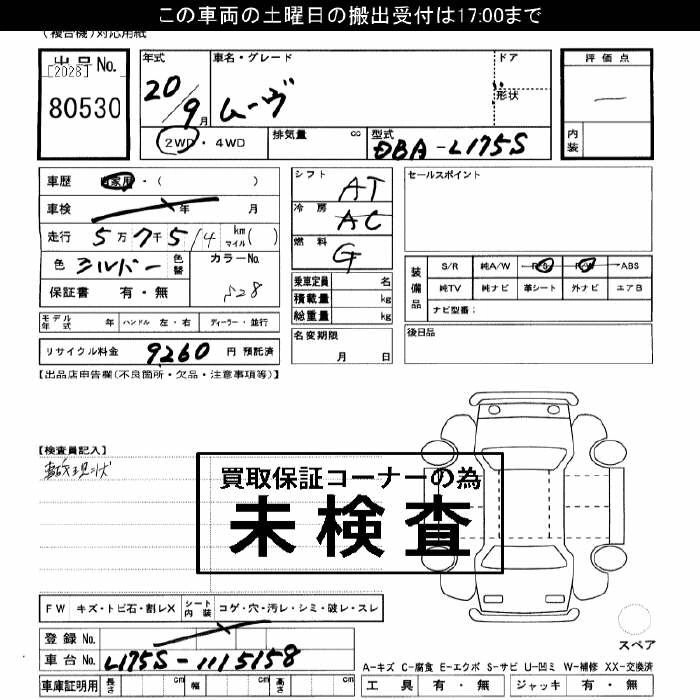 この車両の土曜日の搬出受付は17:00まで
(複合機)対応用紙
出品No.
[2028]
80530
年式 車名・グレード ドア
20/9月 ムーヴ 形状
2WD・4WD 排気量 cc 型式 DBA-L175S
評価点
内装
車歴 自家用・( )
車検 年 月
走行 5万7千514 km マイル( )
色 シルバー 色替 カラーNo.
保証書 有・無 S28
モデル年式 年 ハンドル 左・右 ディーラー・並行
リサイクル料金 9260 円 預託済
シフト AT
冷房 AC
燃料 G
乗車定員 名
積載量 kg
総重量 kg
名変期限
月 日
セールスポイント
装備品
S/R 純A/W P/S P/W ABS
純TV 純ナビ 革シート 外ナビ エアB
ナビ型番:
後日品
【出品店申告欄(不良箇所・欠品・注意事項等)】
【検査員記入】
買取保証コーナーの為
未検査
FW キズ・トビ石・割レX シート内装 コゲ・穴・汚レ・シミ・破レ・スレ
登録 No.
車台 No. L175S-1115158
車庫証明用 長さ cm 幅 cm 高さ cm
スペア
A-キズ C-腐食 E-エクボ S-サビ U-凹ミ W-補修 XX-交換済
工具 有・無 ジャッキ 有・無